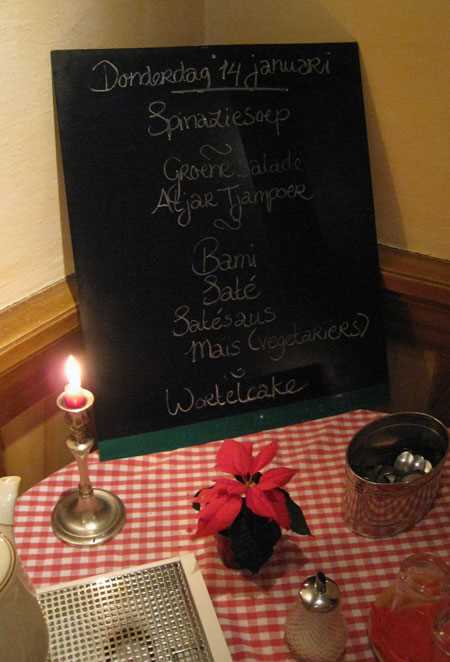 Donderdag 14 januari
Spinaziesoep
Groene salade
Atjar Tjampoer
Bami
Saté
Satésaus
Mais (vegetariers)
Wortelcake